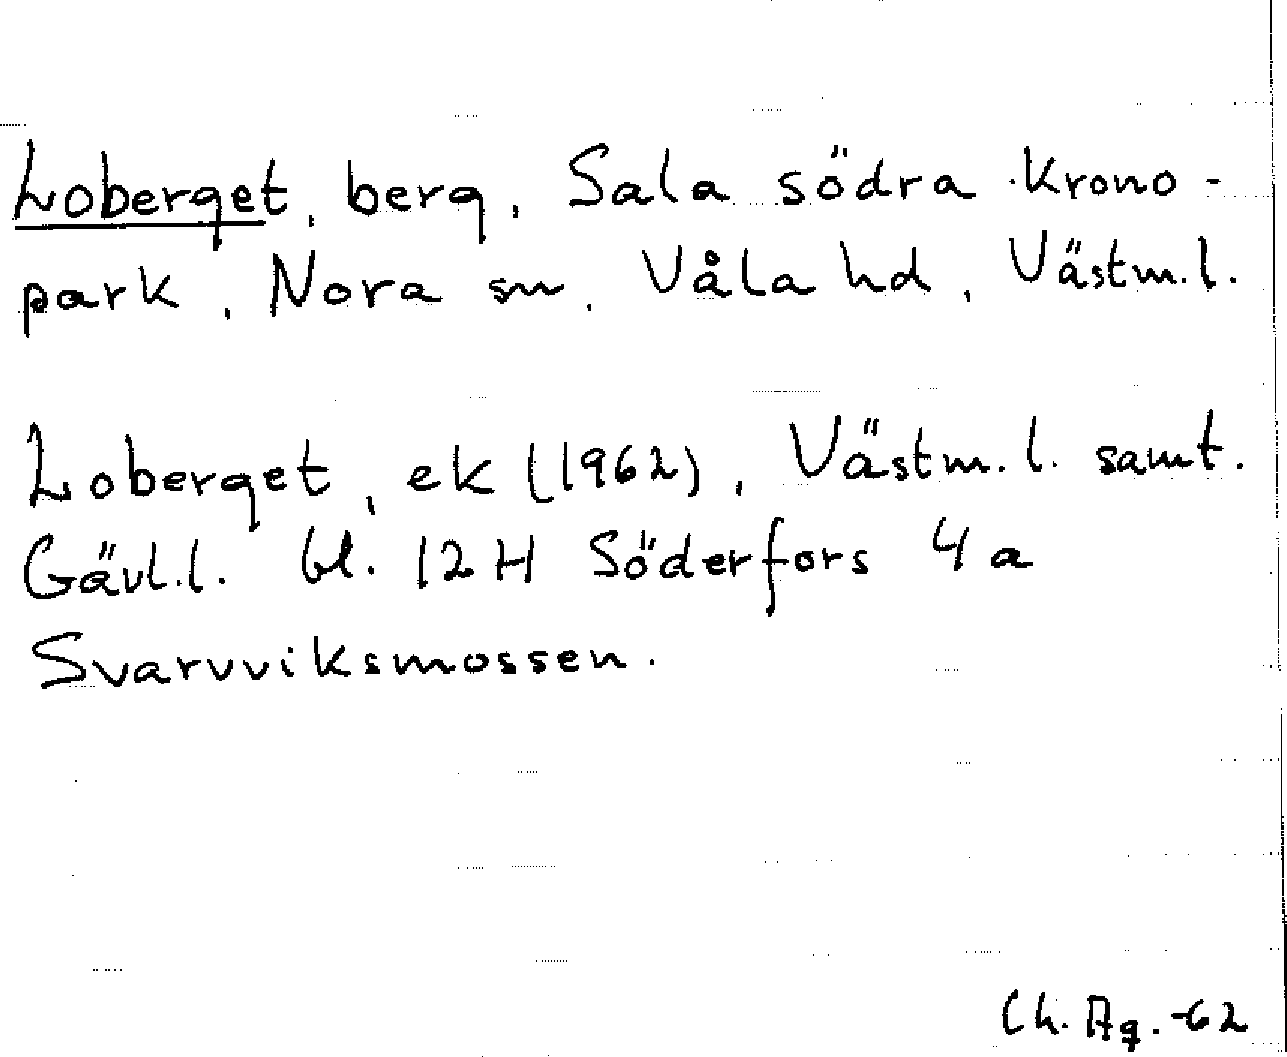 Loberget, berg, Sala södra Krono-
park, Nora sn, Våla hd, Västm.l.
Loberget, ek (1962), Västm.l. samt.
Gävl.l. bl. 12H Söderfors 4a
Svarvviksmossen.
Ch. Ag. -62